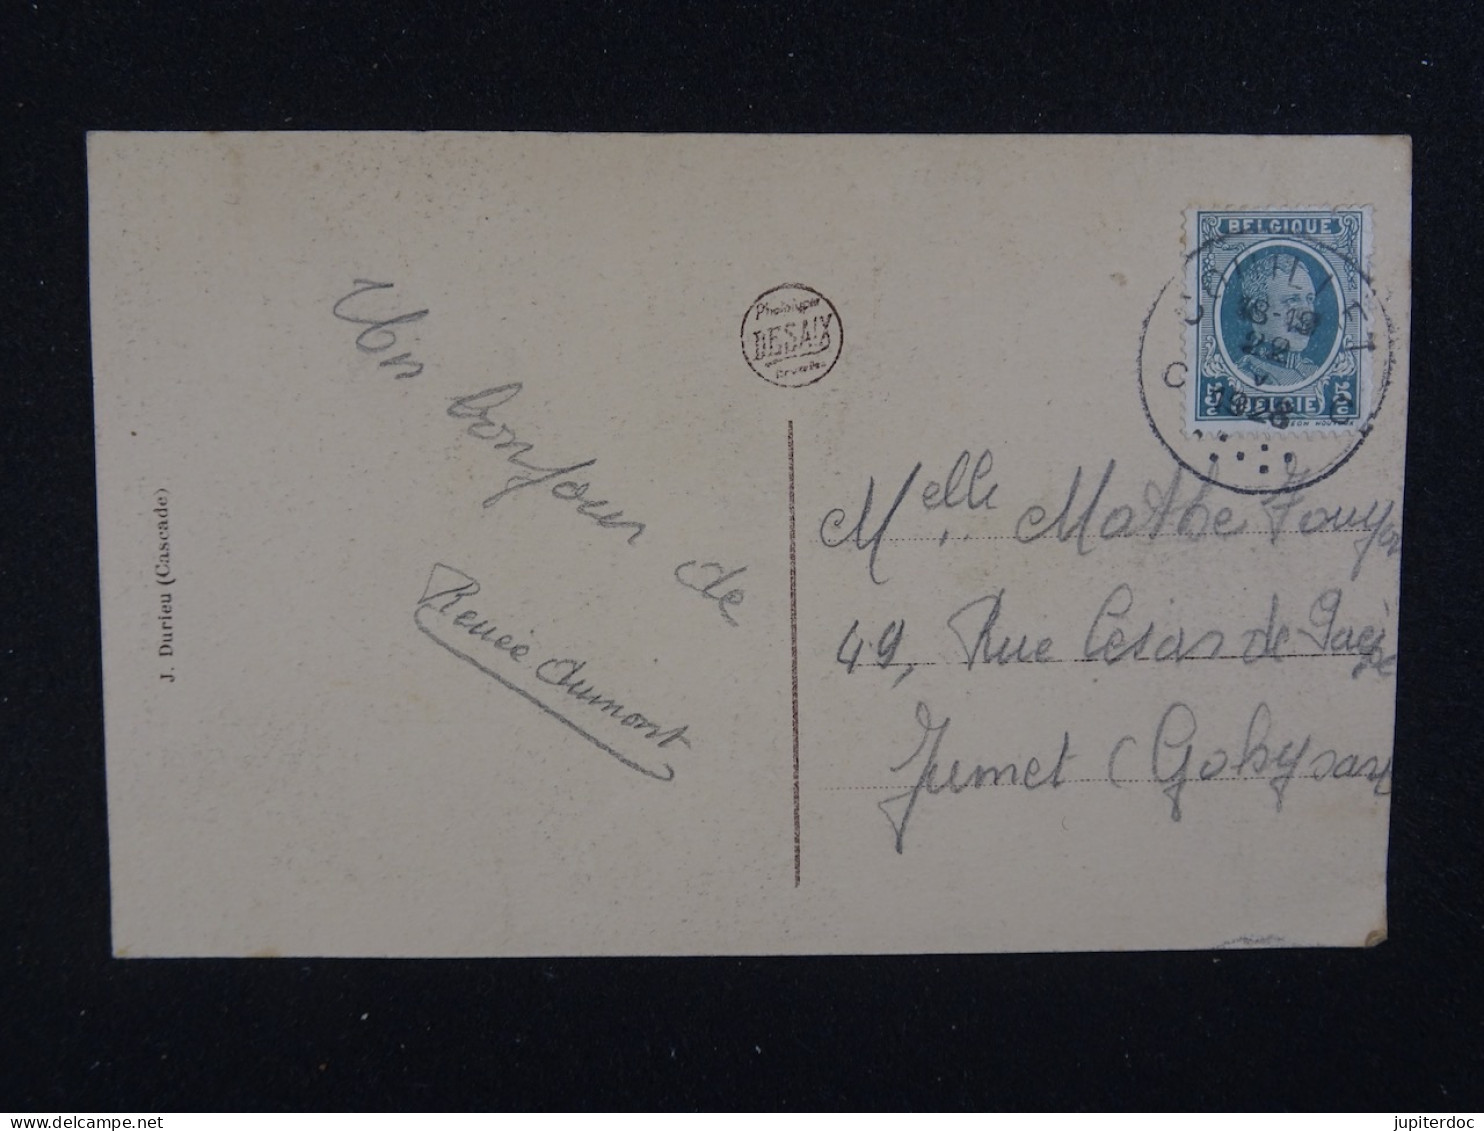 Un bonjour de
Renée Aumont
J. Durieu (Cascade)
Phototypie
DESAIX
Bruxelles
BELGIQUE
BELGIE
COUILLET
18-19
22
V
1928
C C
Melle Mathe
49, Rue Cesar de Paepe
Jumet (Gohyssart
jupiterdoc